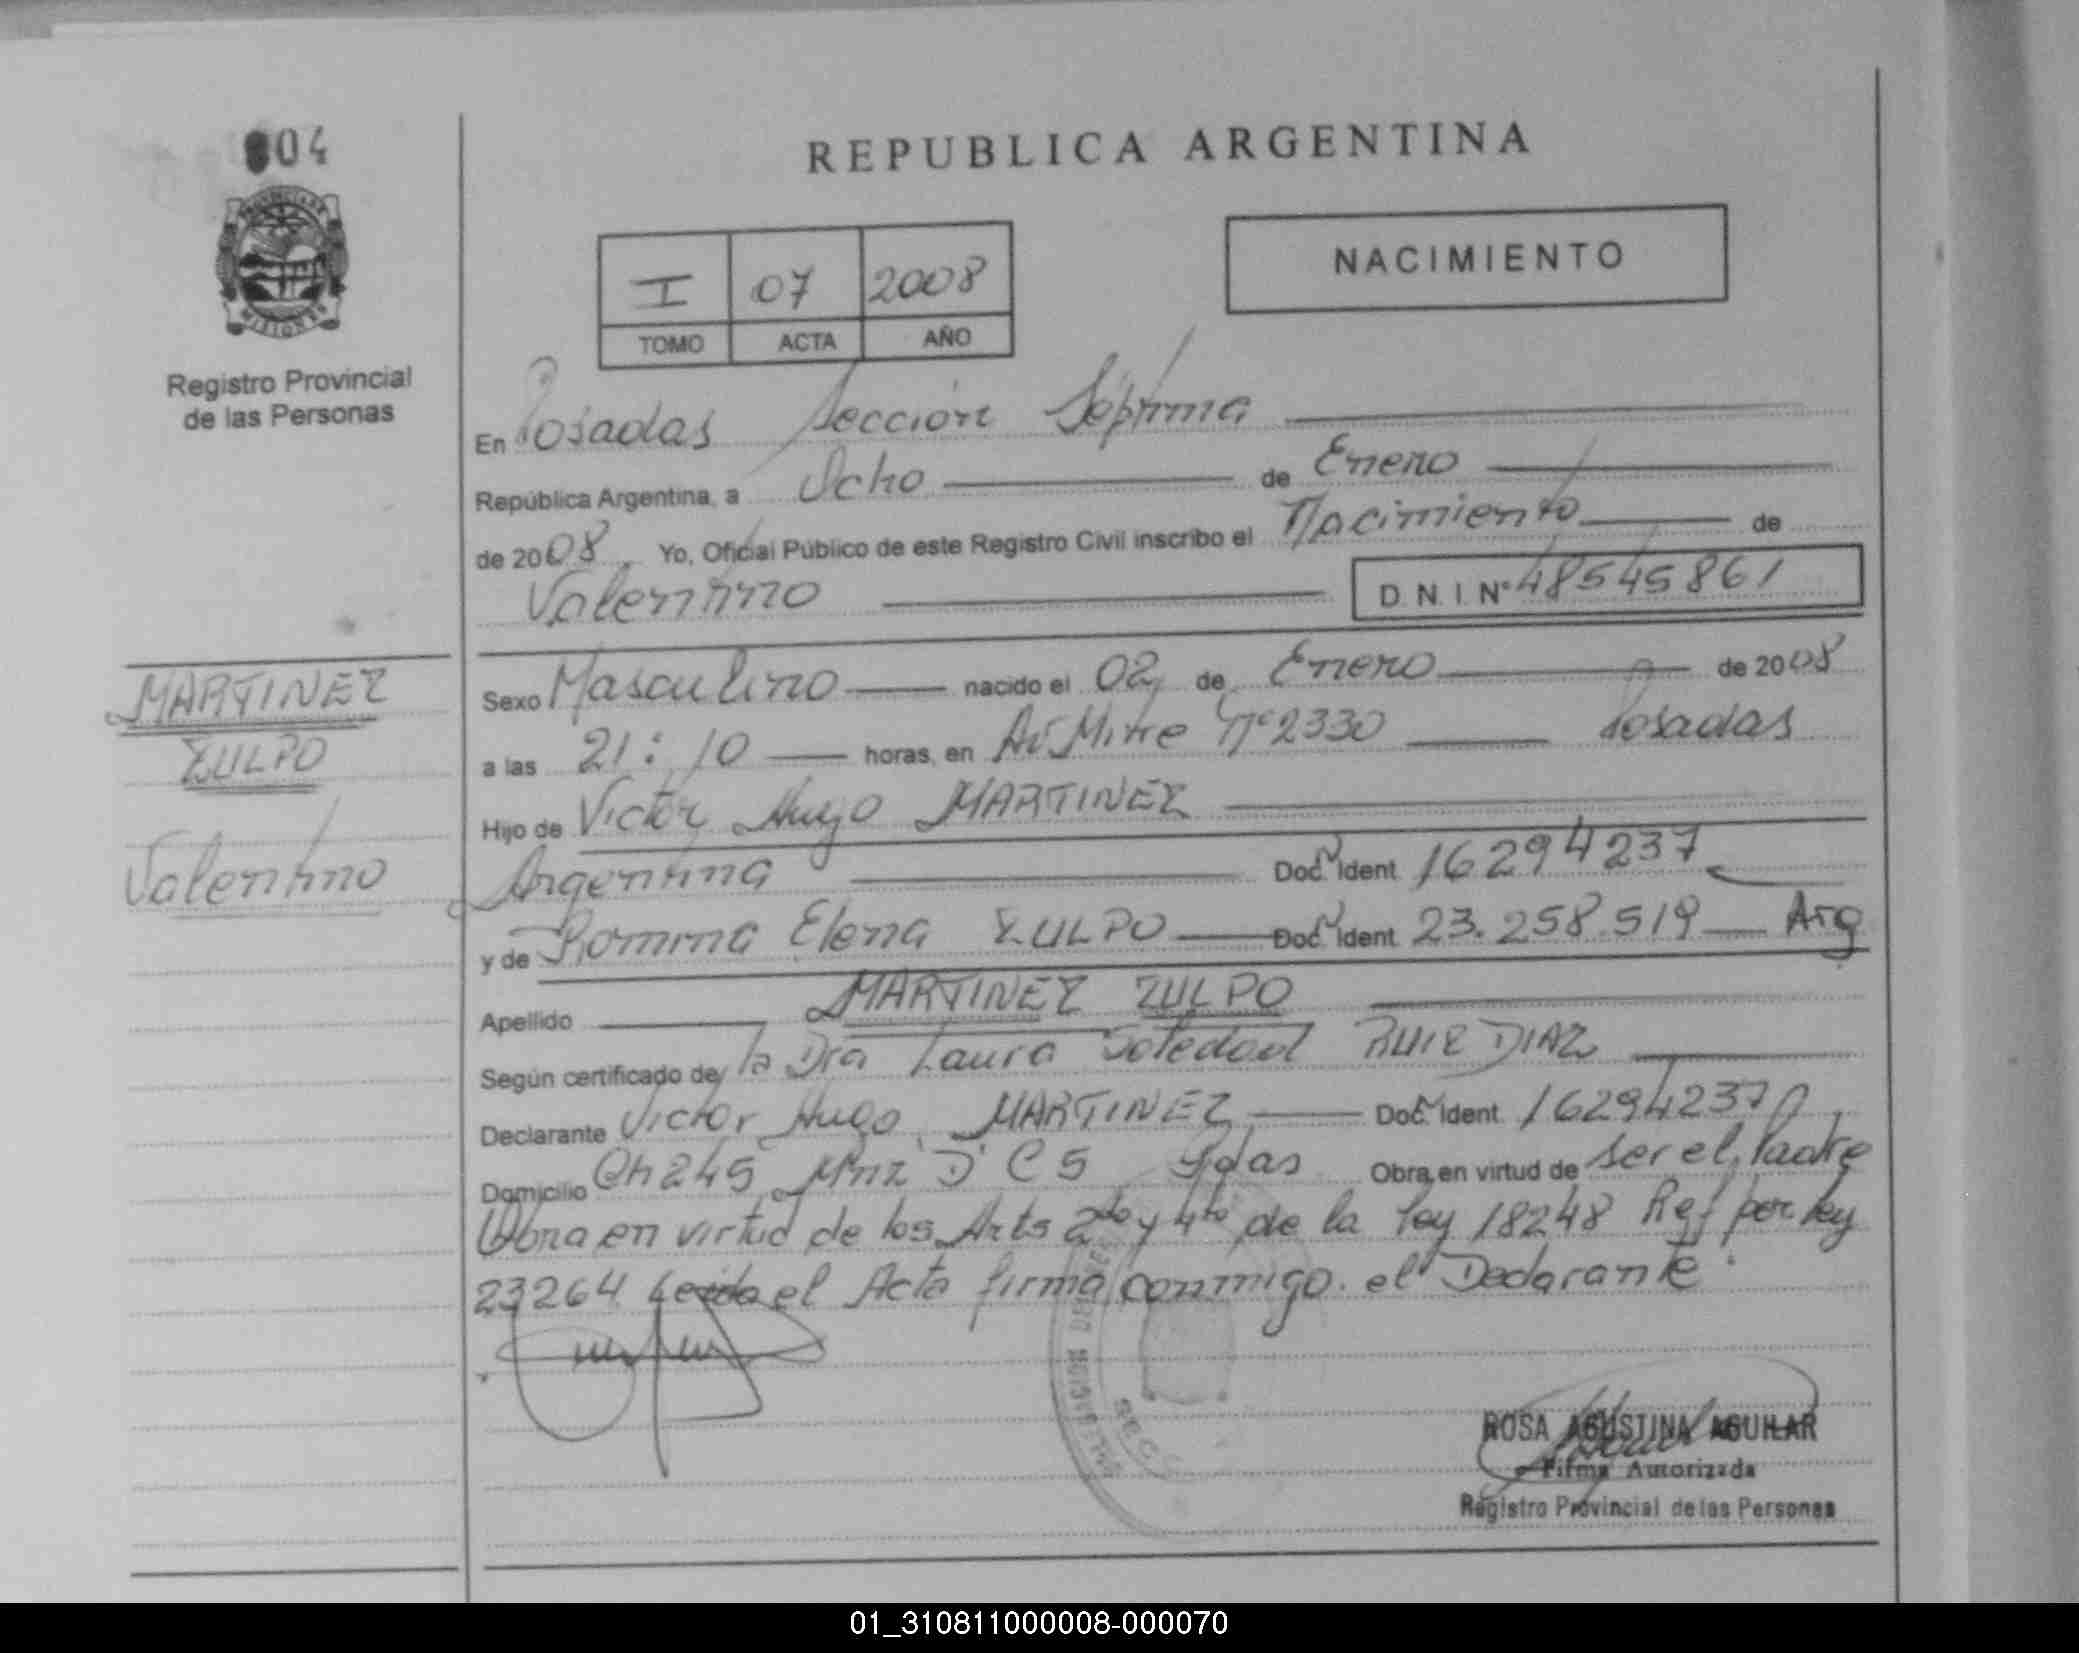 04
PROVINCIA DE
MISIONES
Registro Provincial
de las Personas
REPUBLICA ARGENTINA
I 07 2008
TOMO ACTA AÑO
NACIMIENTO
En Posadas Sección Séptima
República Argentina, a Ocho de Enero
de 2008. Yo, Oficial Público de este Registro Civil inscribo el Nacimiento de
Valentino D.N.I. Nº 48545861
MARTINEZ
ZULPO
Valentino
Sexo Masculino nacido el 02 de Enero de 2008
a las 21:10 horas, en Av Mitre Nº 2330 Posadas
Hijo de Victor Hugo MARTINEZ
Argentina Doc. Ident 16294237
y de Romina Elena ZULPO Doc. Ident 23.258.519 Arg
Apellido MARTINEZ ZULPO
Según certificado de la Dra Laura Soledad RUIZ DIAZ
Declarante Victor Hugo MARTINEZ Doc. Ident. 16294237
Domicilio Ch 245 Mnz D C 5 Pdas Obra en virtud de ser el Padre
Obra en virtud de los Arts 2do y 4to de la ley 18248 Ref por ley
23264 Leida el Acta firma conmigo el Declarante.
ROSA AGUSTINA AGUILAR
Firma Autorizada
Registro Provincial de las Personas
01_310811000008-000070